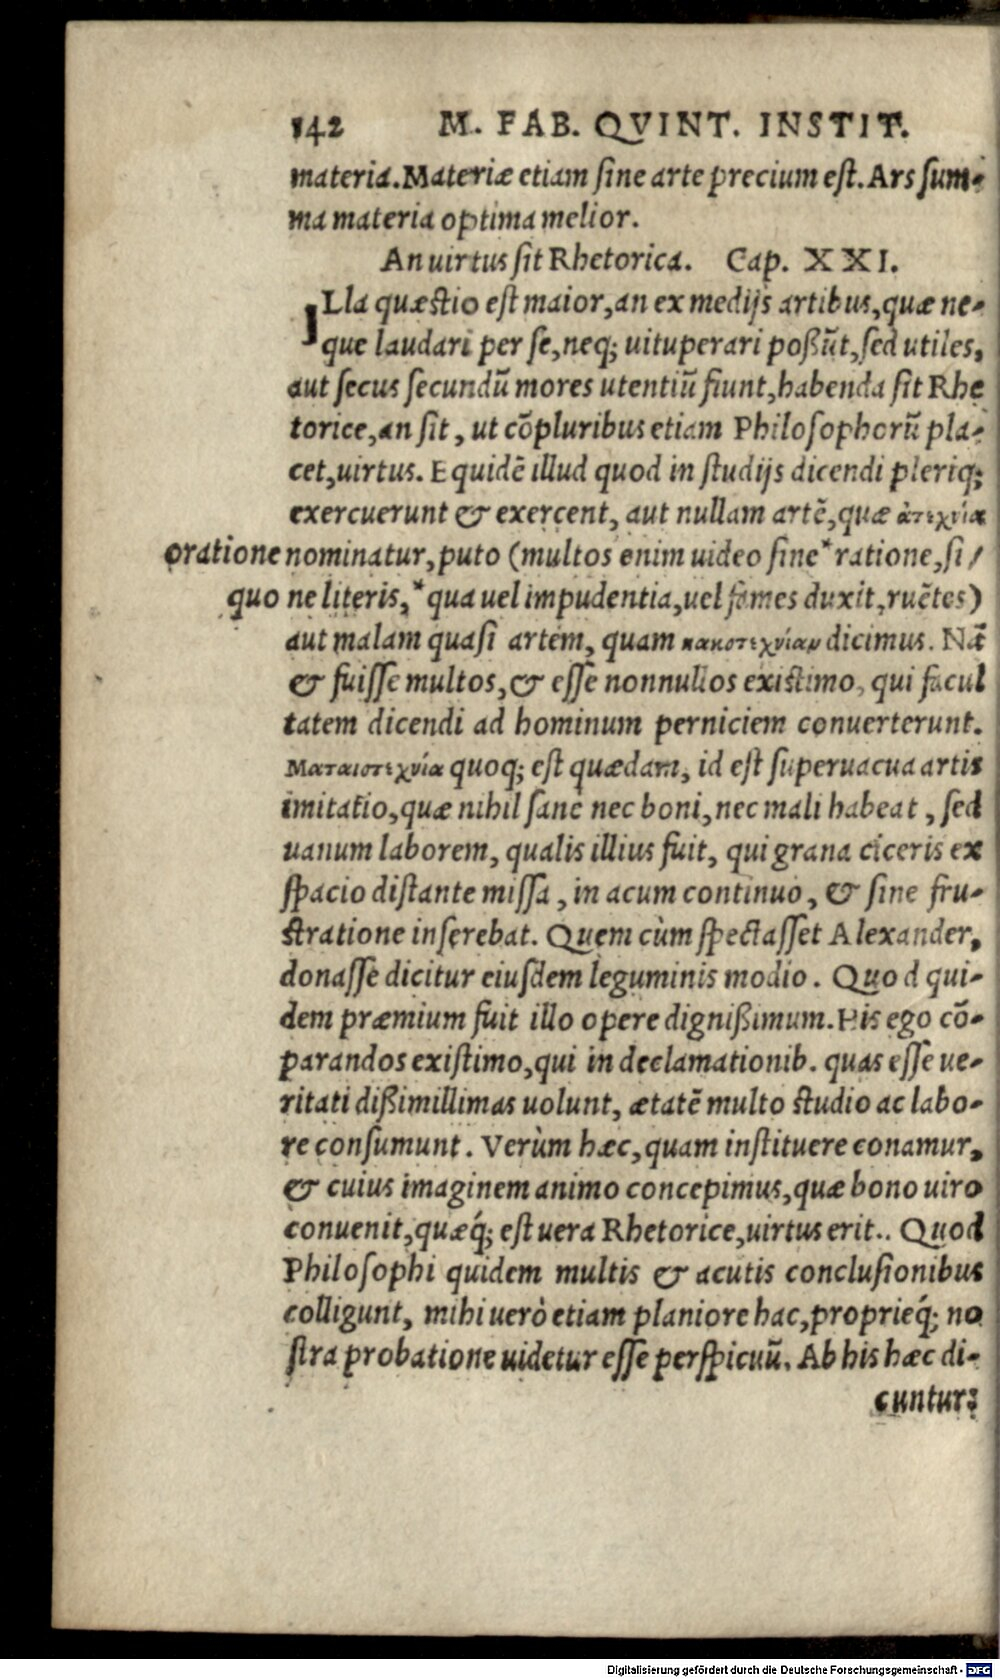 142 M. FAB. QVINT. INSTIT.
materia. Materiæ etiam ſine arte precium eſt. Ars ſum-
ma materia optima melior.
An uirtus ſit Rhetorica. Cap. XXI.
ILla quæſtio eſt maior, an ex medijs artibus, quæ ne-
que laudari per ſe, neq; uituperari poßũt, ſed utiles,
aut ſecus ſecundũ mores utentiũ fiunt, habenda ſit Rhe
torice, an ſit, ut cõpluribus etiam Philoſophorũ pla-
cet, uirtus. Equidẽ illud quod in ſtudijs dicendi pleriq;
exercuerunt & exercent, aut nullam artẽ, quæ ἀτεχνία
oratione nominatur, puto (multos enim uideo ſine * ratione, ſi/
quo ne literis, * qua uel impudentia, uel fames duxit, ruẽtes)
aut malam quaſi artem, quam κακοτεχνίαν dicimus. Nã
& fuiſſe multos, & eſſe nonnullos exiſtimo, qui facul
tatem dicendi ad hominum perniciem conuerterunt.
Ματαιοτεχνία quoq; eſt quædam, id eſt ſuperuacua artis
imitatio, quæ nihil ſane nec boni, nec mali habeat, ſed
uanum laborem, qualis illius fuit, qui grana ciceris ex
ſpacio diſtante miſſa, in acum continuo, & ſine fru-
ſtratione inſerebat. Quem cùm ſpectaſſet Alexander,
donaſſe dicitur eiuſdem leguminis modio. Quod qui-
dem præmium fuit illo opere dignißimum. His ego cõ-
parandos exiſtimo, qui in declamationib. quas eſſe ue-
ritati dißimillimas uolunt, ætatẽ multo ſtudio ac labo-
re conſumunt. Verùm hæc, quam inſtituere conamur,
& cuius imaginem animo concepimus, quæ bono uiro
conuenit, quæq́; eſt uera Rhetorice, uirtus erit.. Quod
Philoſophi quidem multis & acutis concluſionibus
colligunt, mihi uerò etiam planiore hac, proprieq́; no
ſtra probatione uidetur eſſe perſpicuũ. Ab his hæc di-
cuntur:
Digitalisierung gefördert durch die Deutsche Forschungsgemeinschaft - DFG